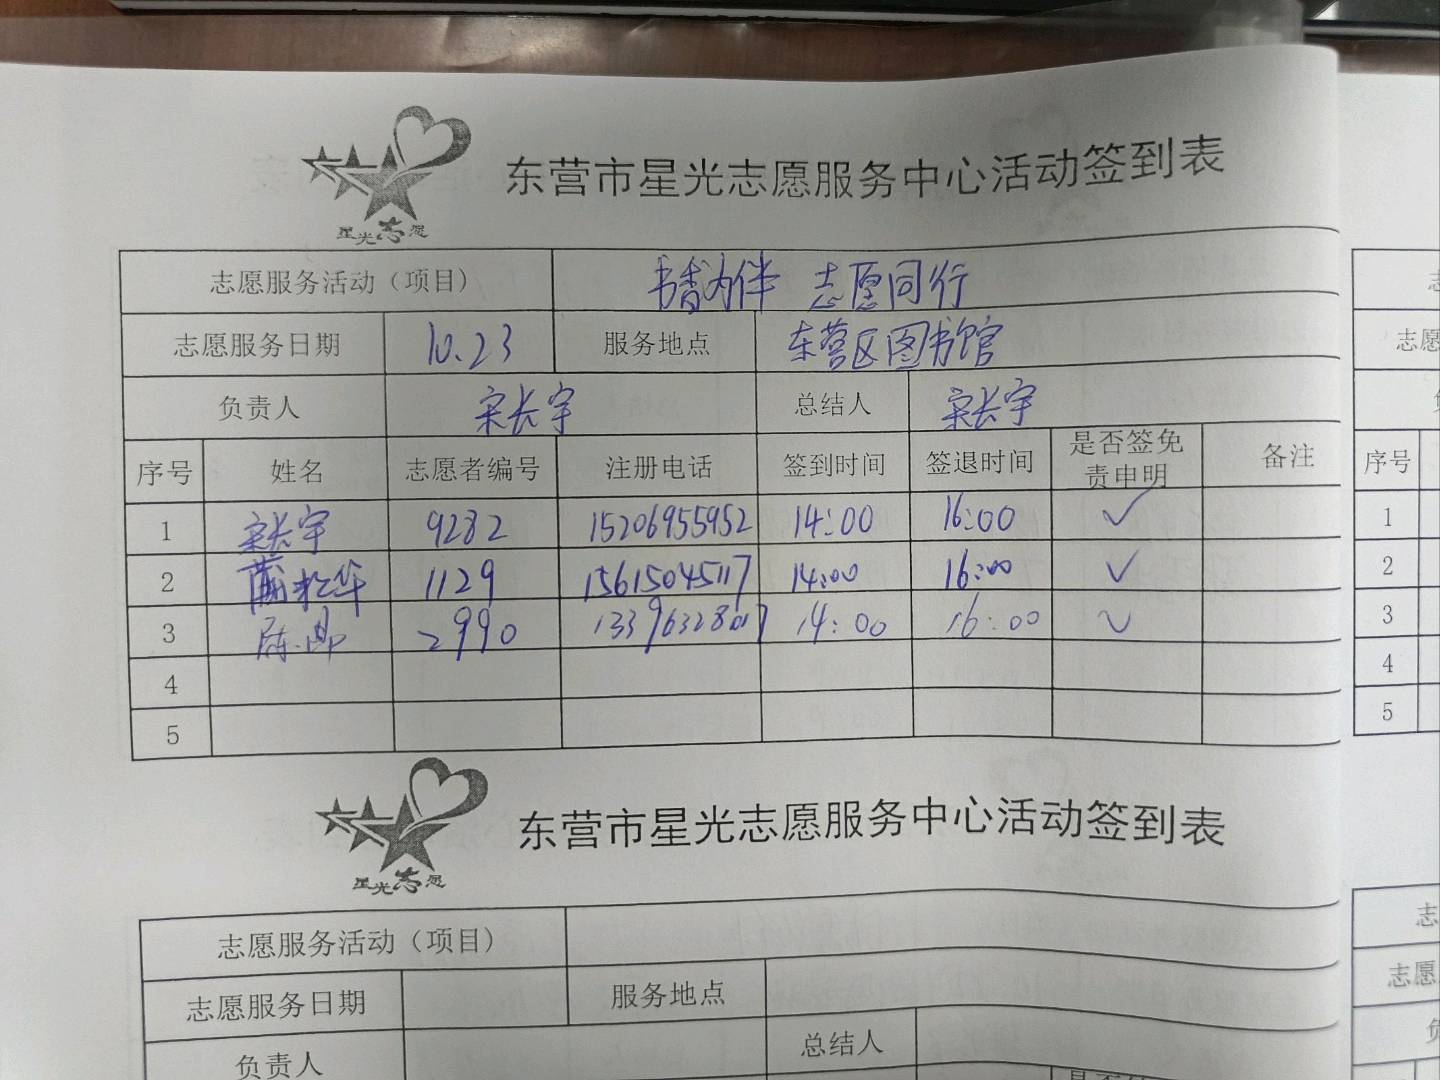 星光志愿
东营市星光志愿服务中心活动签到表
志愿服务活动（项目） 书香为伴 志愿同行
志愿服务日期 10.23 服务地点 东营区图书馆
负责人 宋长宇 总结人 宋长宇
序号 姓名 志愿者编号 注册电话 签到时间 签退时间 是否签免责申明 备注
1 宋长宇 9282 15206955952 14:00 16:00 ✓
2 蒲松华 1129 15615045117 14:00 16:00 ✓
3 陈 2990 14:00 16:00 ✓
4
5
星光志愿
东营市星光志愿服务中心活动签到表
志愿服务活动（项目）
志愿服务日期 服务地点
负责人 总结人
志
志愿
序号
1
2
3
4
5
志
志愿